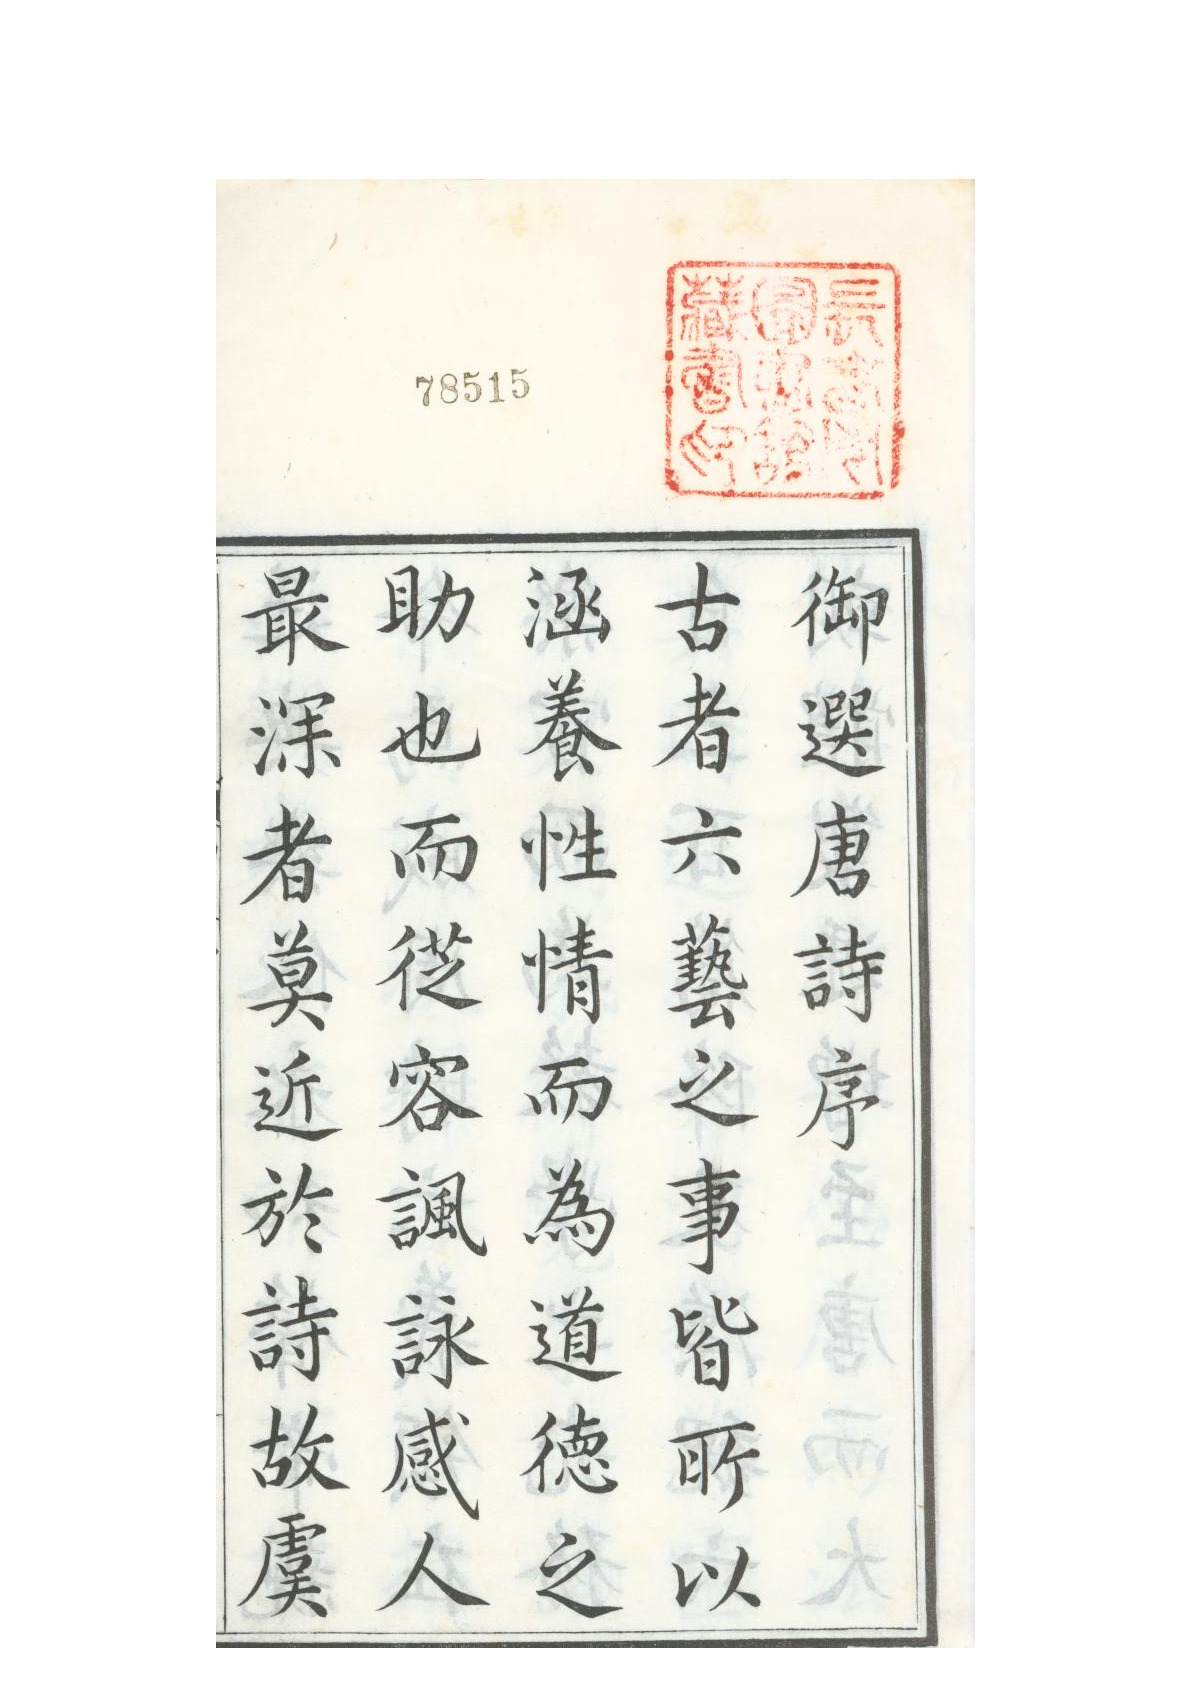 長春市
圖書館
藏書印
78515
御選唐詩序
古者六藝之事皆所以
涵養性情而為道德之
助也而從容諷詠感人
最深者莫近於詩故虞